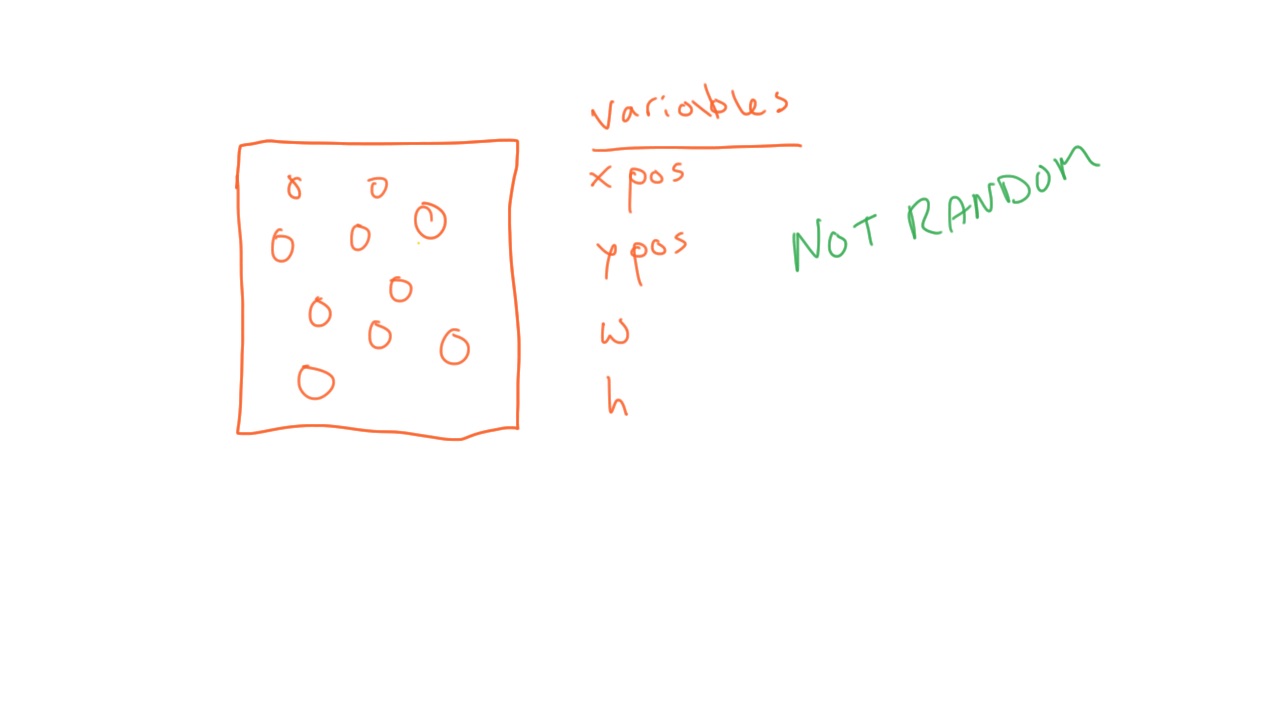 variables
x pos
y pos
w
h
NOT RANDOM